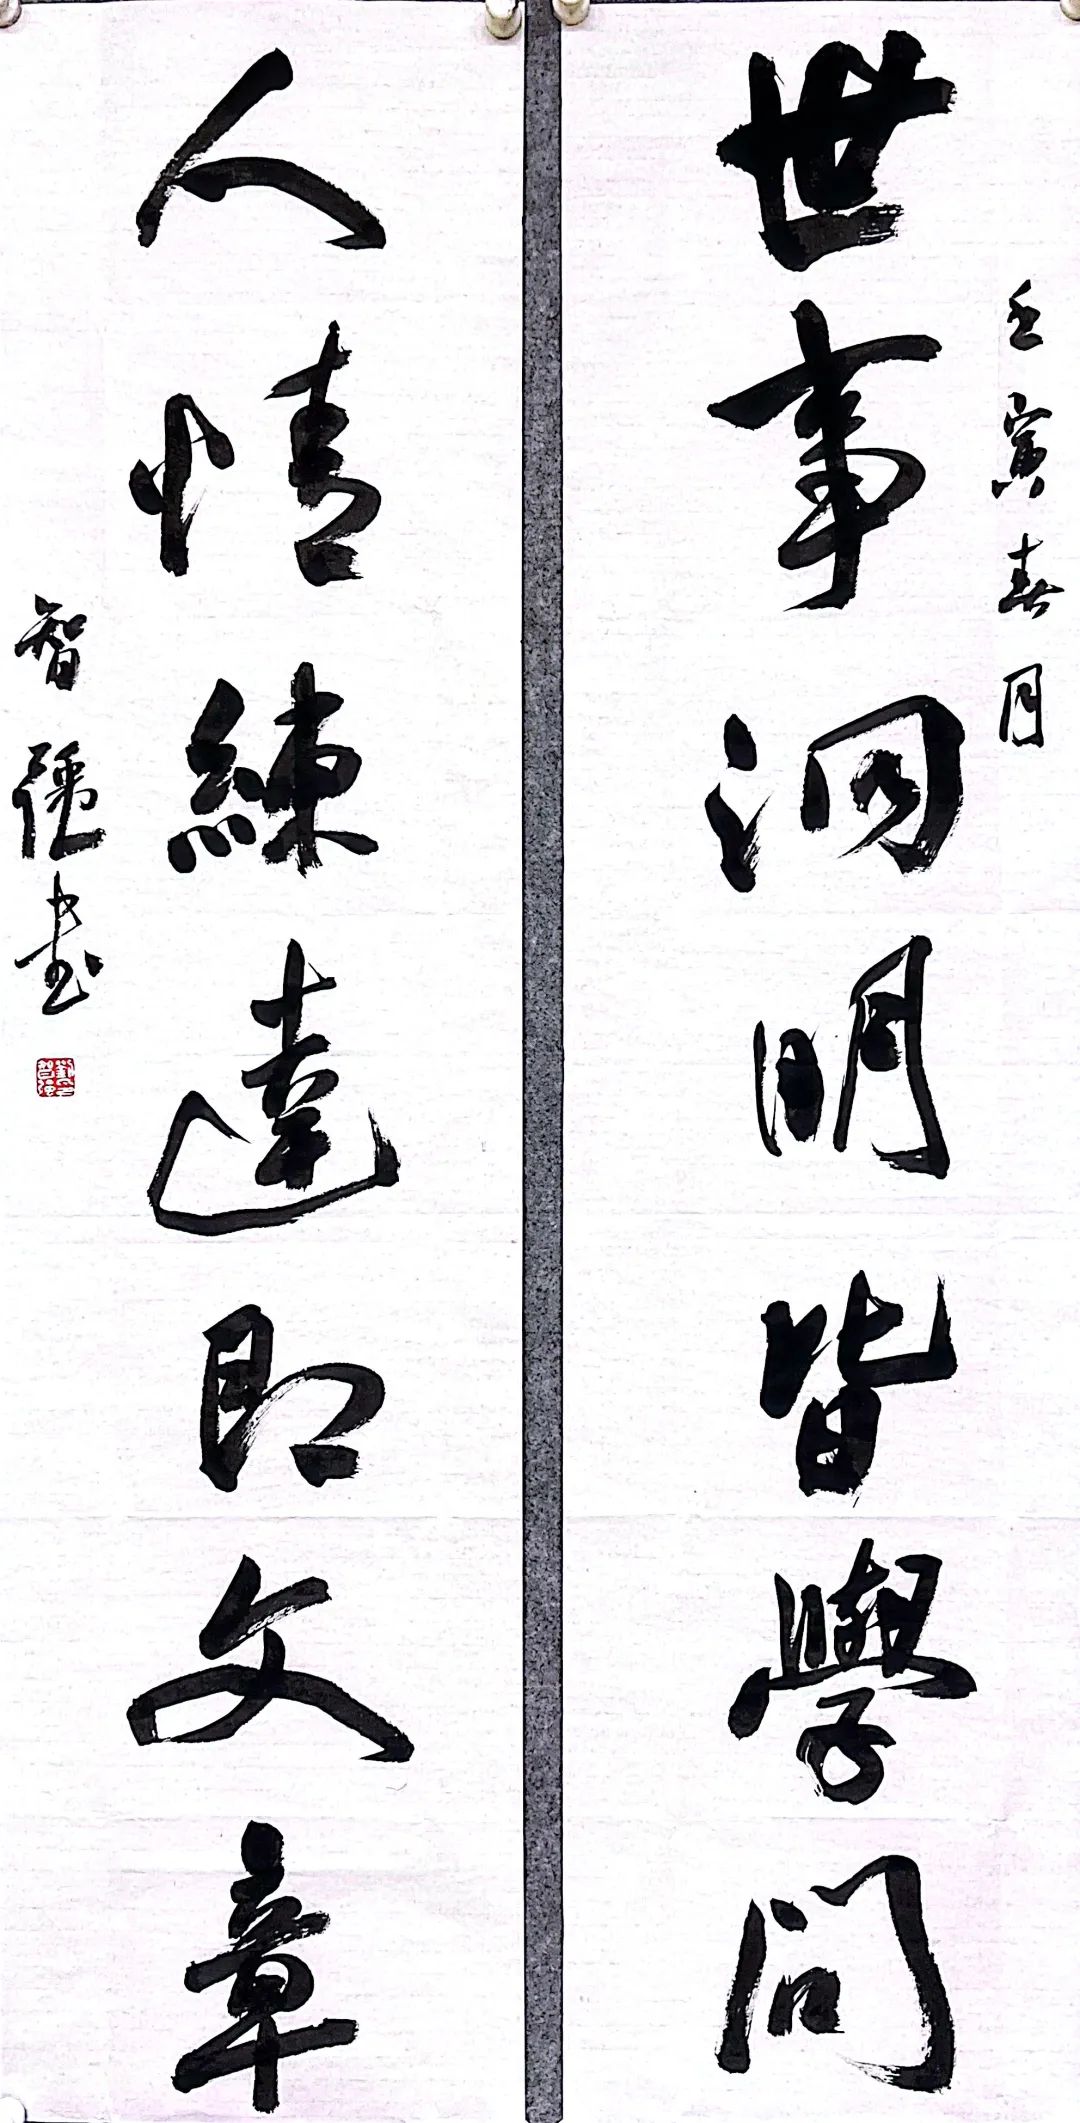 壬寅春月
世事洞明皆學問
人情練達即文章
智強書